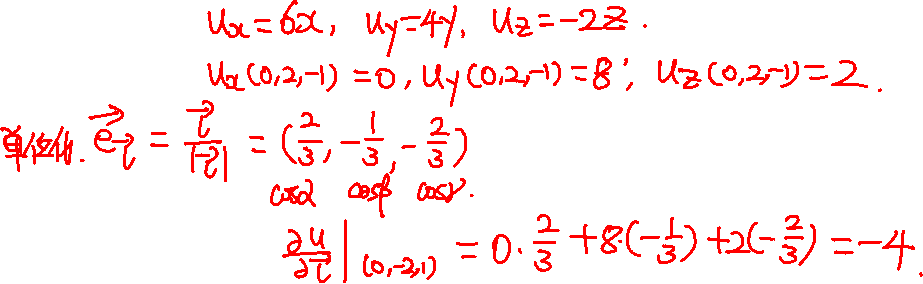 u_x=6x, u_y=4y, u_z=-2z.
u_x(0,2,-1)=0, u_y(0,2,-1)=8; u_z(0,2,-1)=2.
单位化. \vec{e}_{\vec{l}} = \frac{\vec{l}}{|\vec{l}|} = (\frac{2}{3}, -\frac{1}{3}, -\frac{2}{3})
cosα cosβ cosγ.
\frac{∂u}{∂\vec{l}}|_{(0,-2,1)} = 0·\frac{2}{3}+8·(-\frac{1}{3})+2(-\frac{2}{3})=-4.